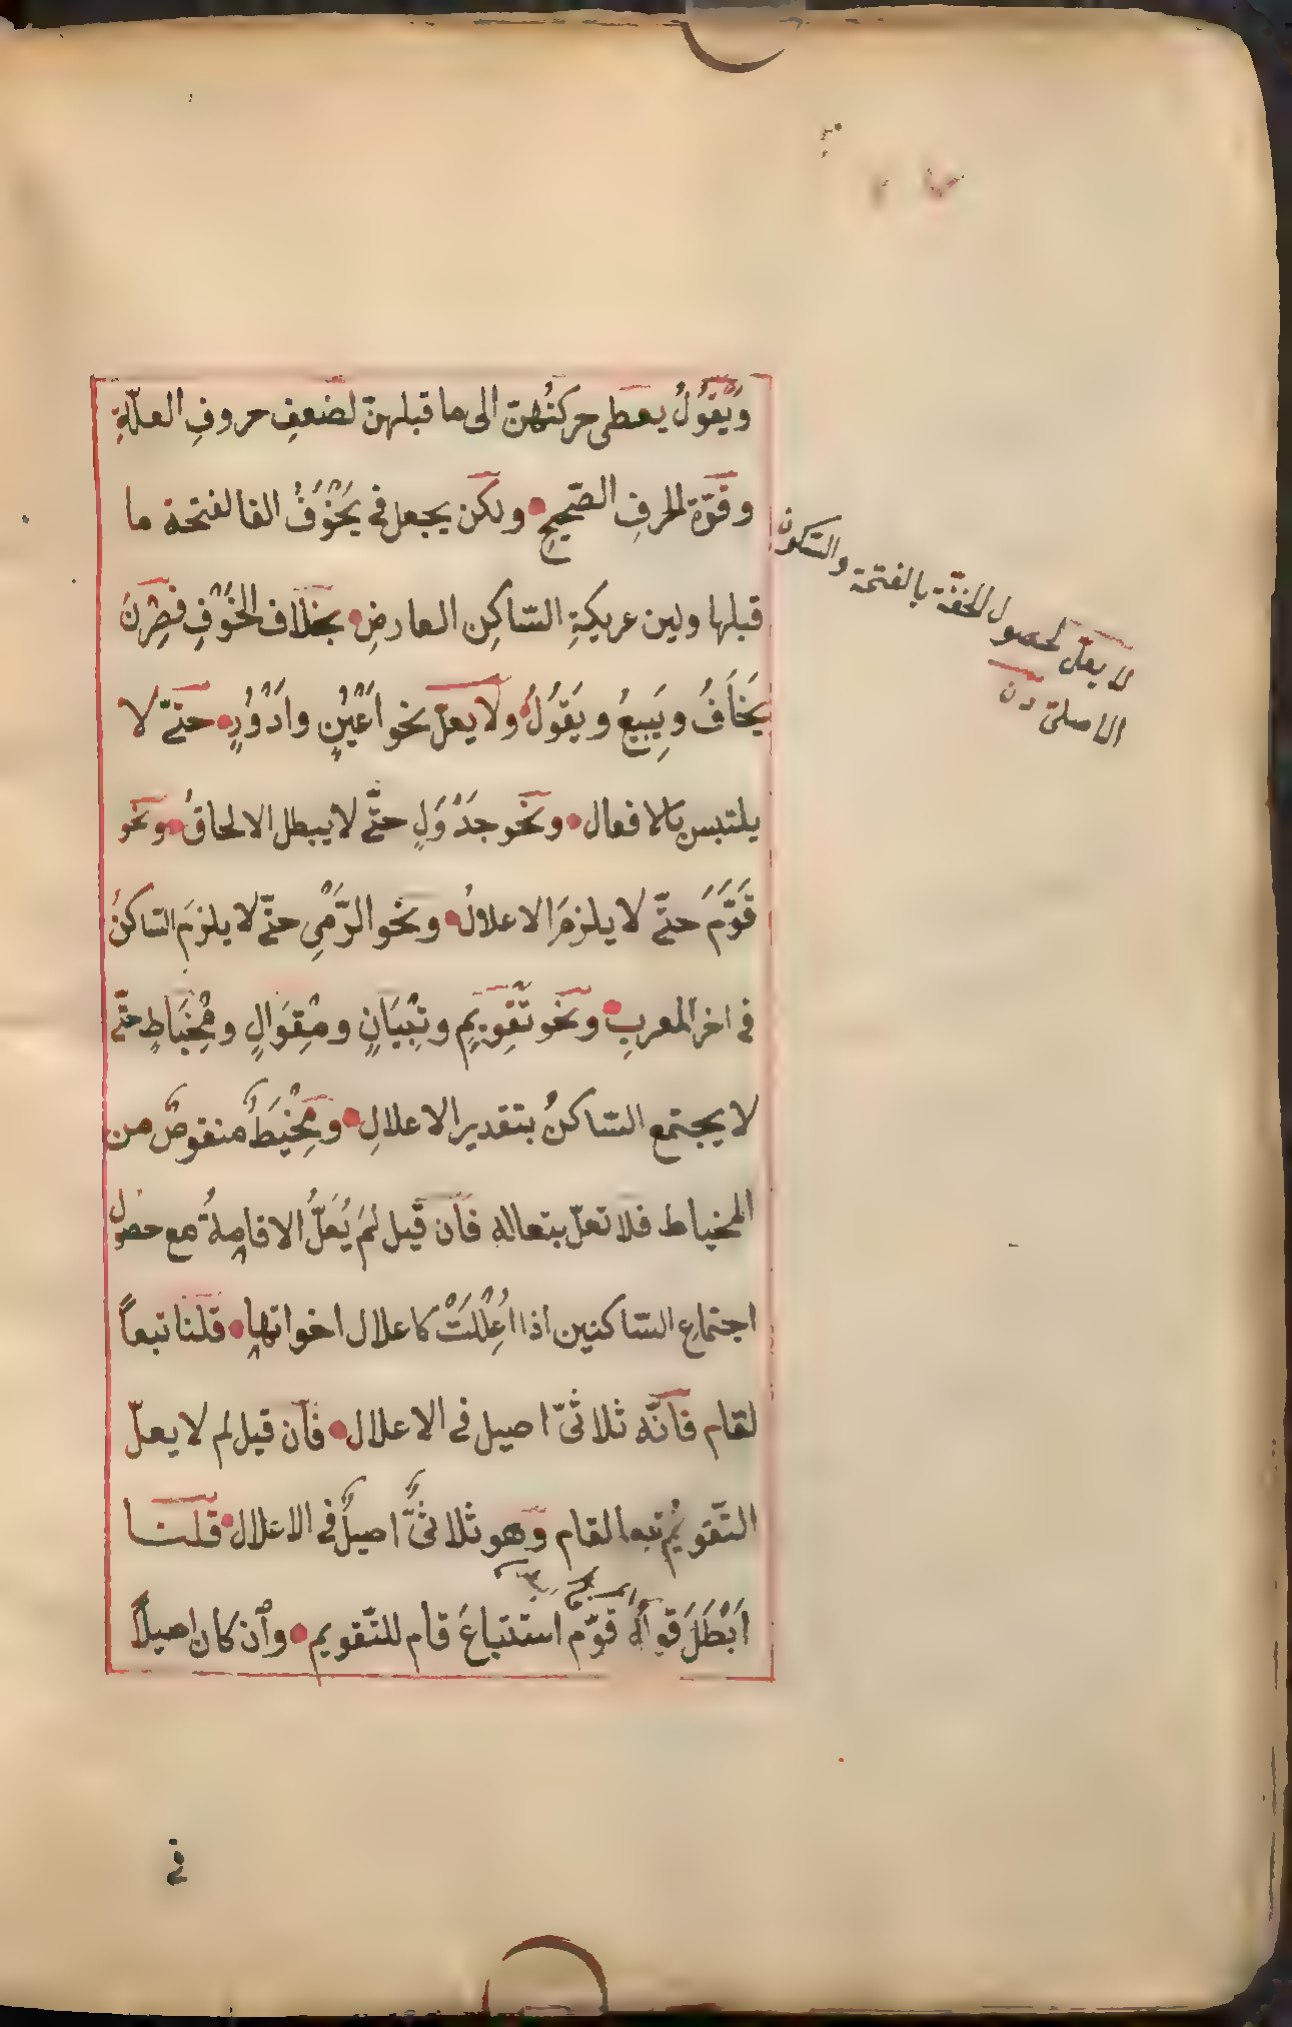 وَيَقْوُلُ يعطى حركتُهنّ الى ما قبلهنّ لضعفِ حروفِ العلّةِ
وقوّة الحرفِ الصّحيحِ ولكن يجعل فى يَخْوَفُ الفا لفتحة ما
قبلها ولين عريكةِ السّاكِن العارضِ بخلاف الخَوْفِ فصِرْنَ
يَخَافُ ويَبِيعُ ويَقُولُ ولا يعلّ نحو اَعْيُنٍ واَدْوُرٍ حتّى لا
يلتبس بالافعال ونحو جَدْوَلٍ حتّى لا يبطل الالحاقُ ونحو
قَوَّمَ حتّى لا يلزمَ الاعلالُ ونحو الرَّمْىِ حتّى لا يلزمَ السّاكنُ
فى اخر المعربِ ونحو تَقْوِيمٍ وتِبْيَانٍ ومِقْوَالٍ ومِخْيَاطٍ حتّى
لا يجتمع السّاكنُ بتقدير الاعلالِ ومِخْيَطٌ منقوصٌ من
المخياط فلا تعلّ بتعاله فان قيل لمَ يُعَلُّ الاقامةُ مع حصول
اجتماعِ السّاكنين اذا اُعِلْلَتْ كاعلال اخواتها قلنا تبعاً
لقام فانّه ثلاثىّ اصيل فى الاعلال فان قيل لم لا يعلّ
التّقويمُ تبعا لقام وهو ثلاثىٌّ اصيلٌ فى الاعلال قلنا
اَبْطَلَ قوله قوّم استتباعَ قام للتّقويم وان كان اصيلاً
فى
لا يعلّ لحصول الخفّة بالفتحة والسّكون
الاصلىّ